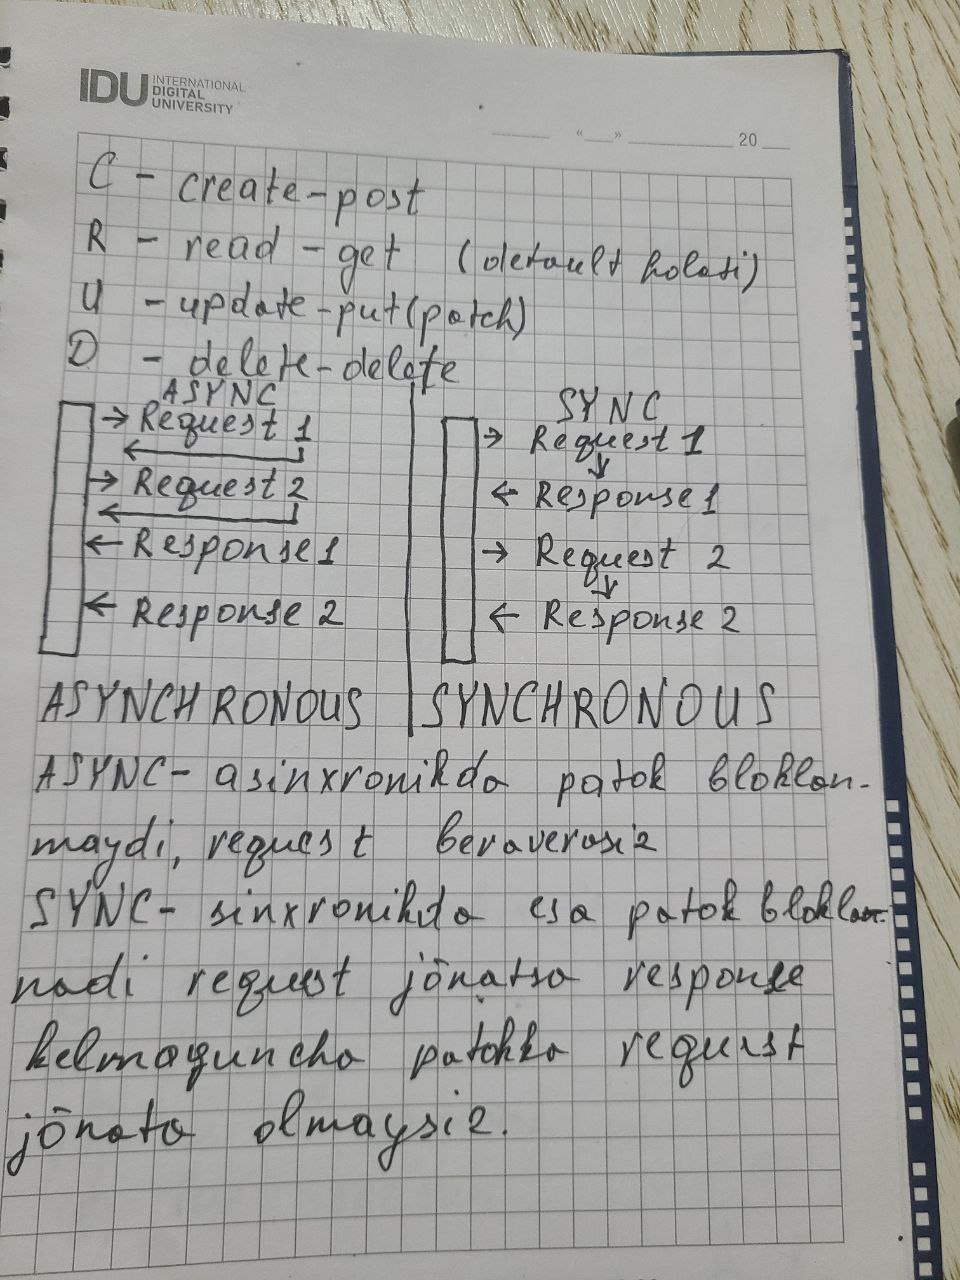 IDU INTERNATIONAL
DIGITAL
UNIVERSITY
«__» 20
C - create-post
R - read - get (default holati)
U - update-put(patch)
D - delete-delete
ASYNC
→ Request 1
→ Request 2
← Response 1
← Response 2
ASYNCHRONOUS
SYNC
→ Request 1
← Response 1
→ Request 2
← Response 2
SYNCHRONOUS
ASYNC- asinxronikda patok bloklan-
maydi, request beraverasiz
SYNC- sinxronikda esa patok bloklan-
nadi request jōnatsa response
kelmaguncha patokka request
jōnata olmaysiz.